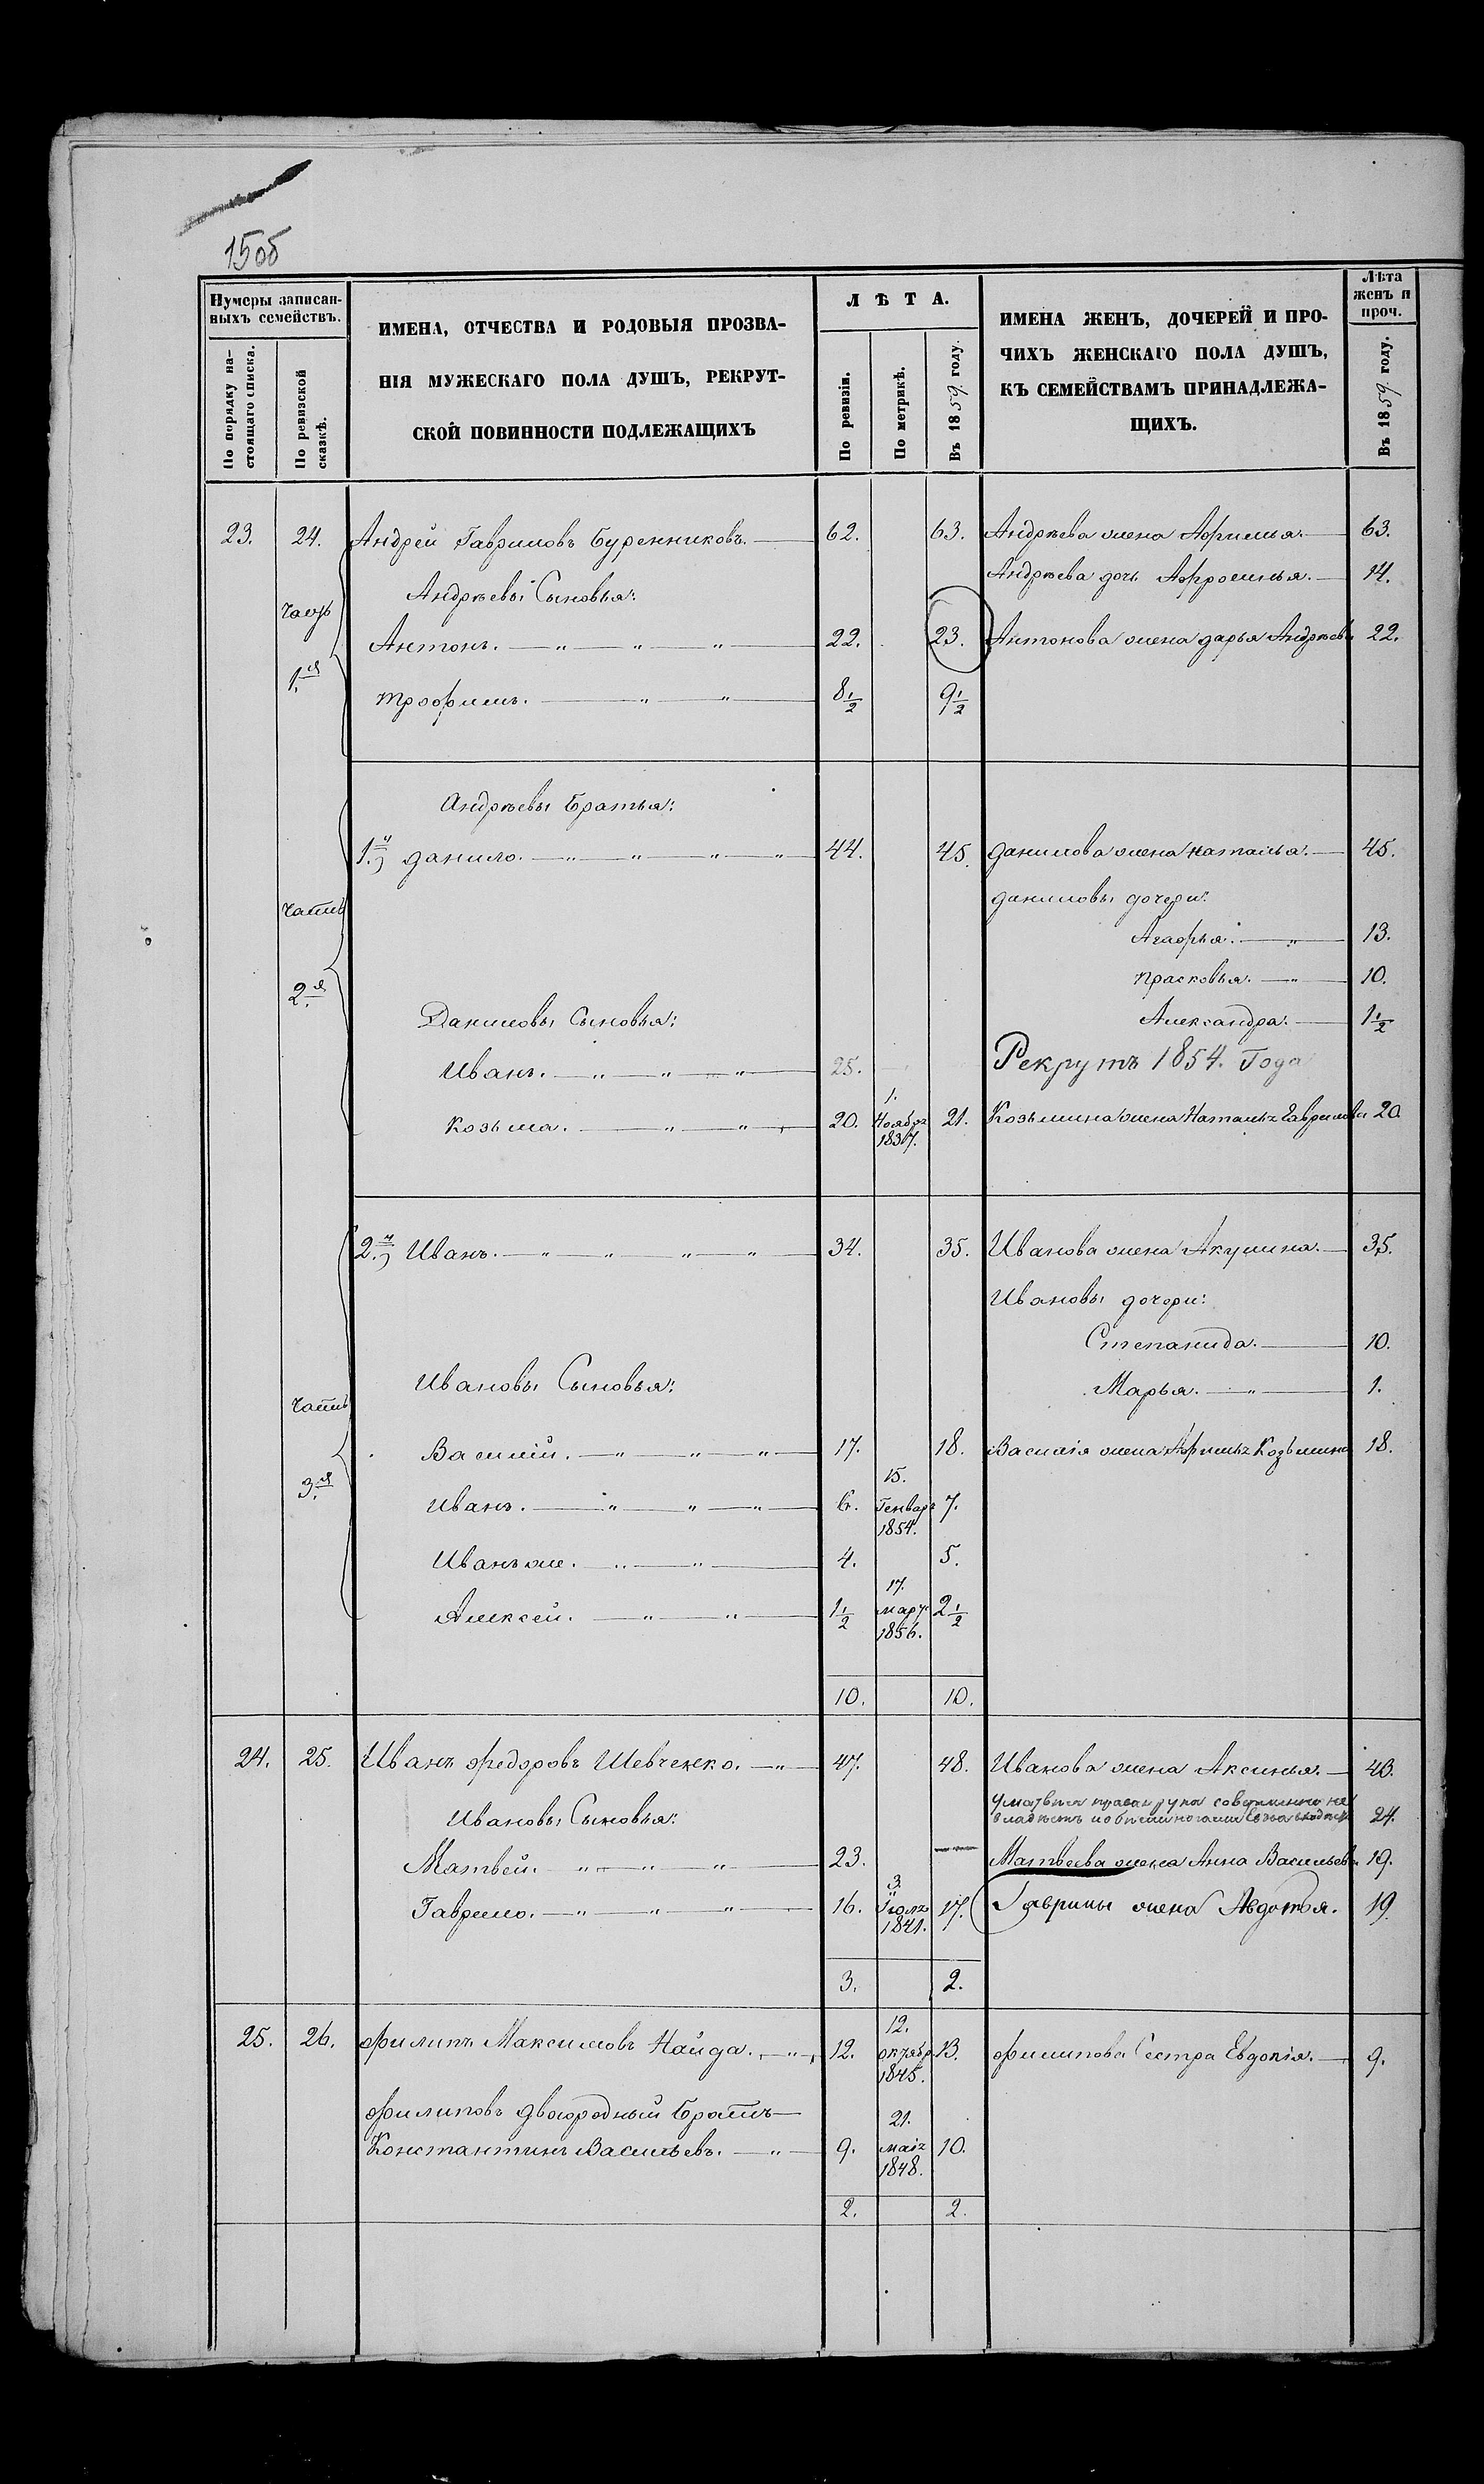 15об
Нумеры записан-
ныхъ семействъ.
По порядку на-
стоящаго списка.
По ревизской
сказкѣ.
ИМЕНА, ОТЧЕСТВА И РОДОВЫЯ ПРОЗВА-
НІЯ МУЖЕСКАГО ПОЛА ДУШЪ, РЕКРУТ-
СКОЙ ПОВИННОСТИ ПОДЛЕЖАЩИХЪ
Л Ѣ Т А.
По ревизіи.
По метрикѣ.
Въ 1859 году.
ИМЕНА ЖЕНЪ, ДОЧЕРЕЙ И ПРО-
ЧИХЪ ЖЕНСКАГО ПОЛА ДУШЪ,
КЪ СЕМЕЙСТВАМЪ ПРИНАДЛЕЖА-
ЩИХЪ.
Лѣта
женъ и
проч.
Въ 1859 году.
23. 24. Андрей Гавриловъ Буренниковъ. 62. 63. Андрѣева жена Афимья. 63.
Андрѣева дочь Афросинья. 14.
Андрѣевы Сыновья:
Часть
Антонъ. 22. 23. Антонова жена дарья Андрѣев 22.
1.я
трофимъ. 8 1/2 9 1/2
Андрѣевы братья:
1.й данило. 44. 45. данилова жена наталья. 45.
даниловы дочери:
Часть
Агафья. 13.
прасковья. 10.
2.я
Даниловы Сыновья: Александра. 1 1/2
Иванъ. 25. Рекрутъ 1854. Года
Козьма. 20. 1. Ноября 1837. 21. Козьмина жена Наталья Гаврилова 20
2.й Иванъ. 34. 35. Иванова жена Акулина. 35.
Ивановы дочери:
Степанида. 10.
Ивановы Сыновья: Марья. 1.
Часть
Василій. 17. 18. Василія жена Афимья Козьмина 18.
3.я
Иванъ. 6. 15. Генваря 1854. 7.
Иванъ же. 4. 5.
Алексей. 1 1/2 17. марта 1856. 2 1/2
10. 10.
24. 25. Иванъ федоровъ Шевченко. 47. 48. Иванова жена Аксинья. 43.
У матвея правая рука совершенно не
Ивановы Сыновья: владѣетъ 24.
Матвей. 23. Матвеева жена Анна Васильева 19.
Гаврило. 16. 3. Іюля 1841. 17. Гаврилы жена Авдотья. 19.
3. 2.
25. 26. филипъ Максимовъ Найда. 12. 12. октября 1845. 13. филипова Сестра Евдокія. 9.
филиповъ двоюродный братъ
Константинъ Васильевъ. 9. 21. маія 1848. 10.
2. 2.